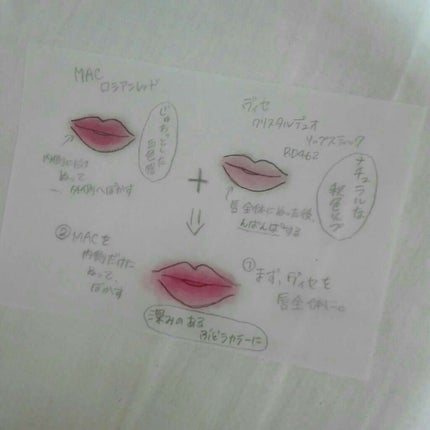 MAC
ロシアンレッド
内側にだけ
ぬって
外側へぼかす
じゅわっとした
血色唇
+
ヴィセ
クリスタルデュオ
リップスティック
RD462
唇全体にぬった後、
んぱんぱする
ナチュラルな
秋色リップ
①まず、ヴィセを
唇全体に。
②MACを
内側だけに
ぬって、
ぼかす
深みのある
ぶどうカラーに